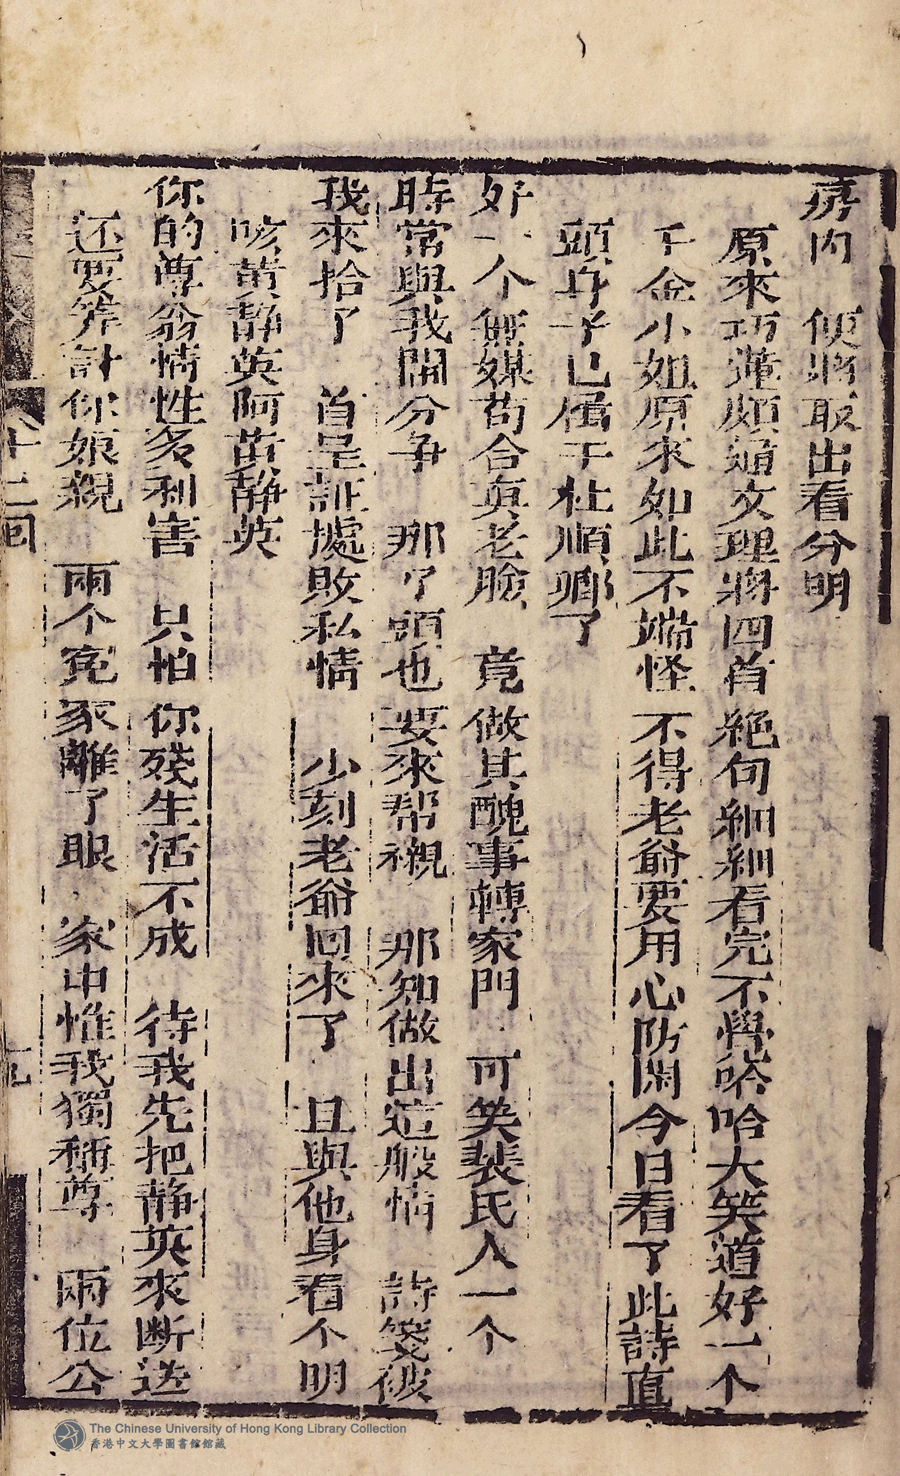 房内　便將取出看分明
原來巧蓮頗通文理將四首絕句細細看完不覺哈哈大笑道好一个
千金小姐原來如此不端怪不得老爺要用心防閑今日看了此詩直
頭身子已偹于杜順卿了
好一个無媒苟合真老臉　竟做其醜事轉家門　可笑裴氏人一个
時常與我開分争　那了頭也要來帮襯　那知做出這般情　詩箋彼
我來拾了　首呈証處敗私情　少刻老爺回來了　且與他身看个明
咳苗静英阿苗静英
你的尊翁情性多利害　只怕你殘生活不成　待我先把静英來断送
还要筭計你娘親　兩个寃家離了眼　家中惟我獨稱尊　兩位公
十二回
The Chinese University of Hong Kong Library Collection
香港中文大學圖書館館藏